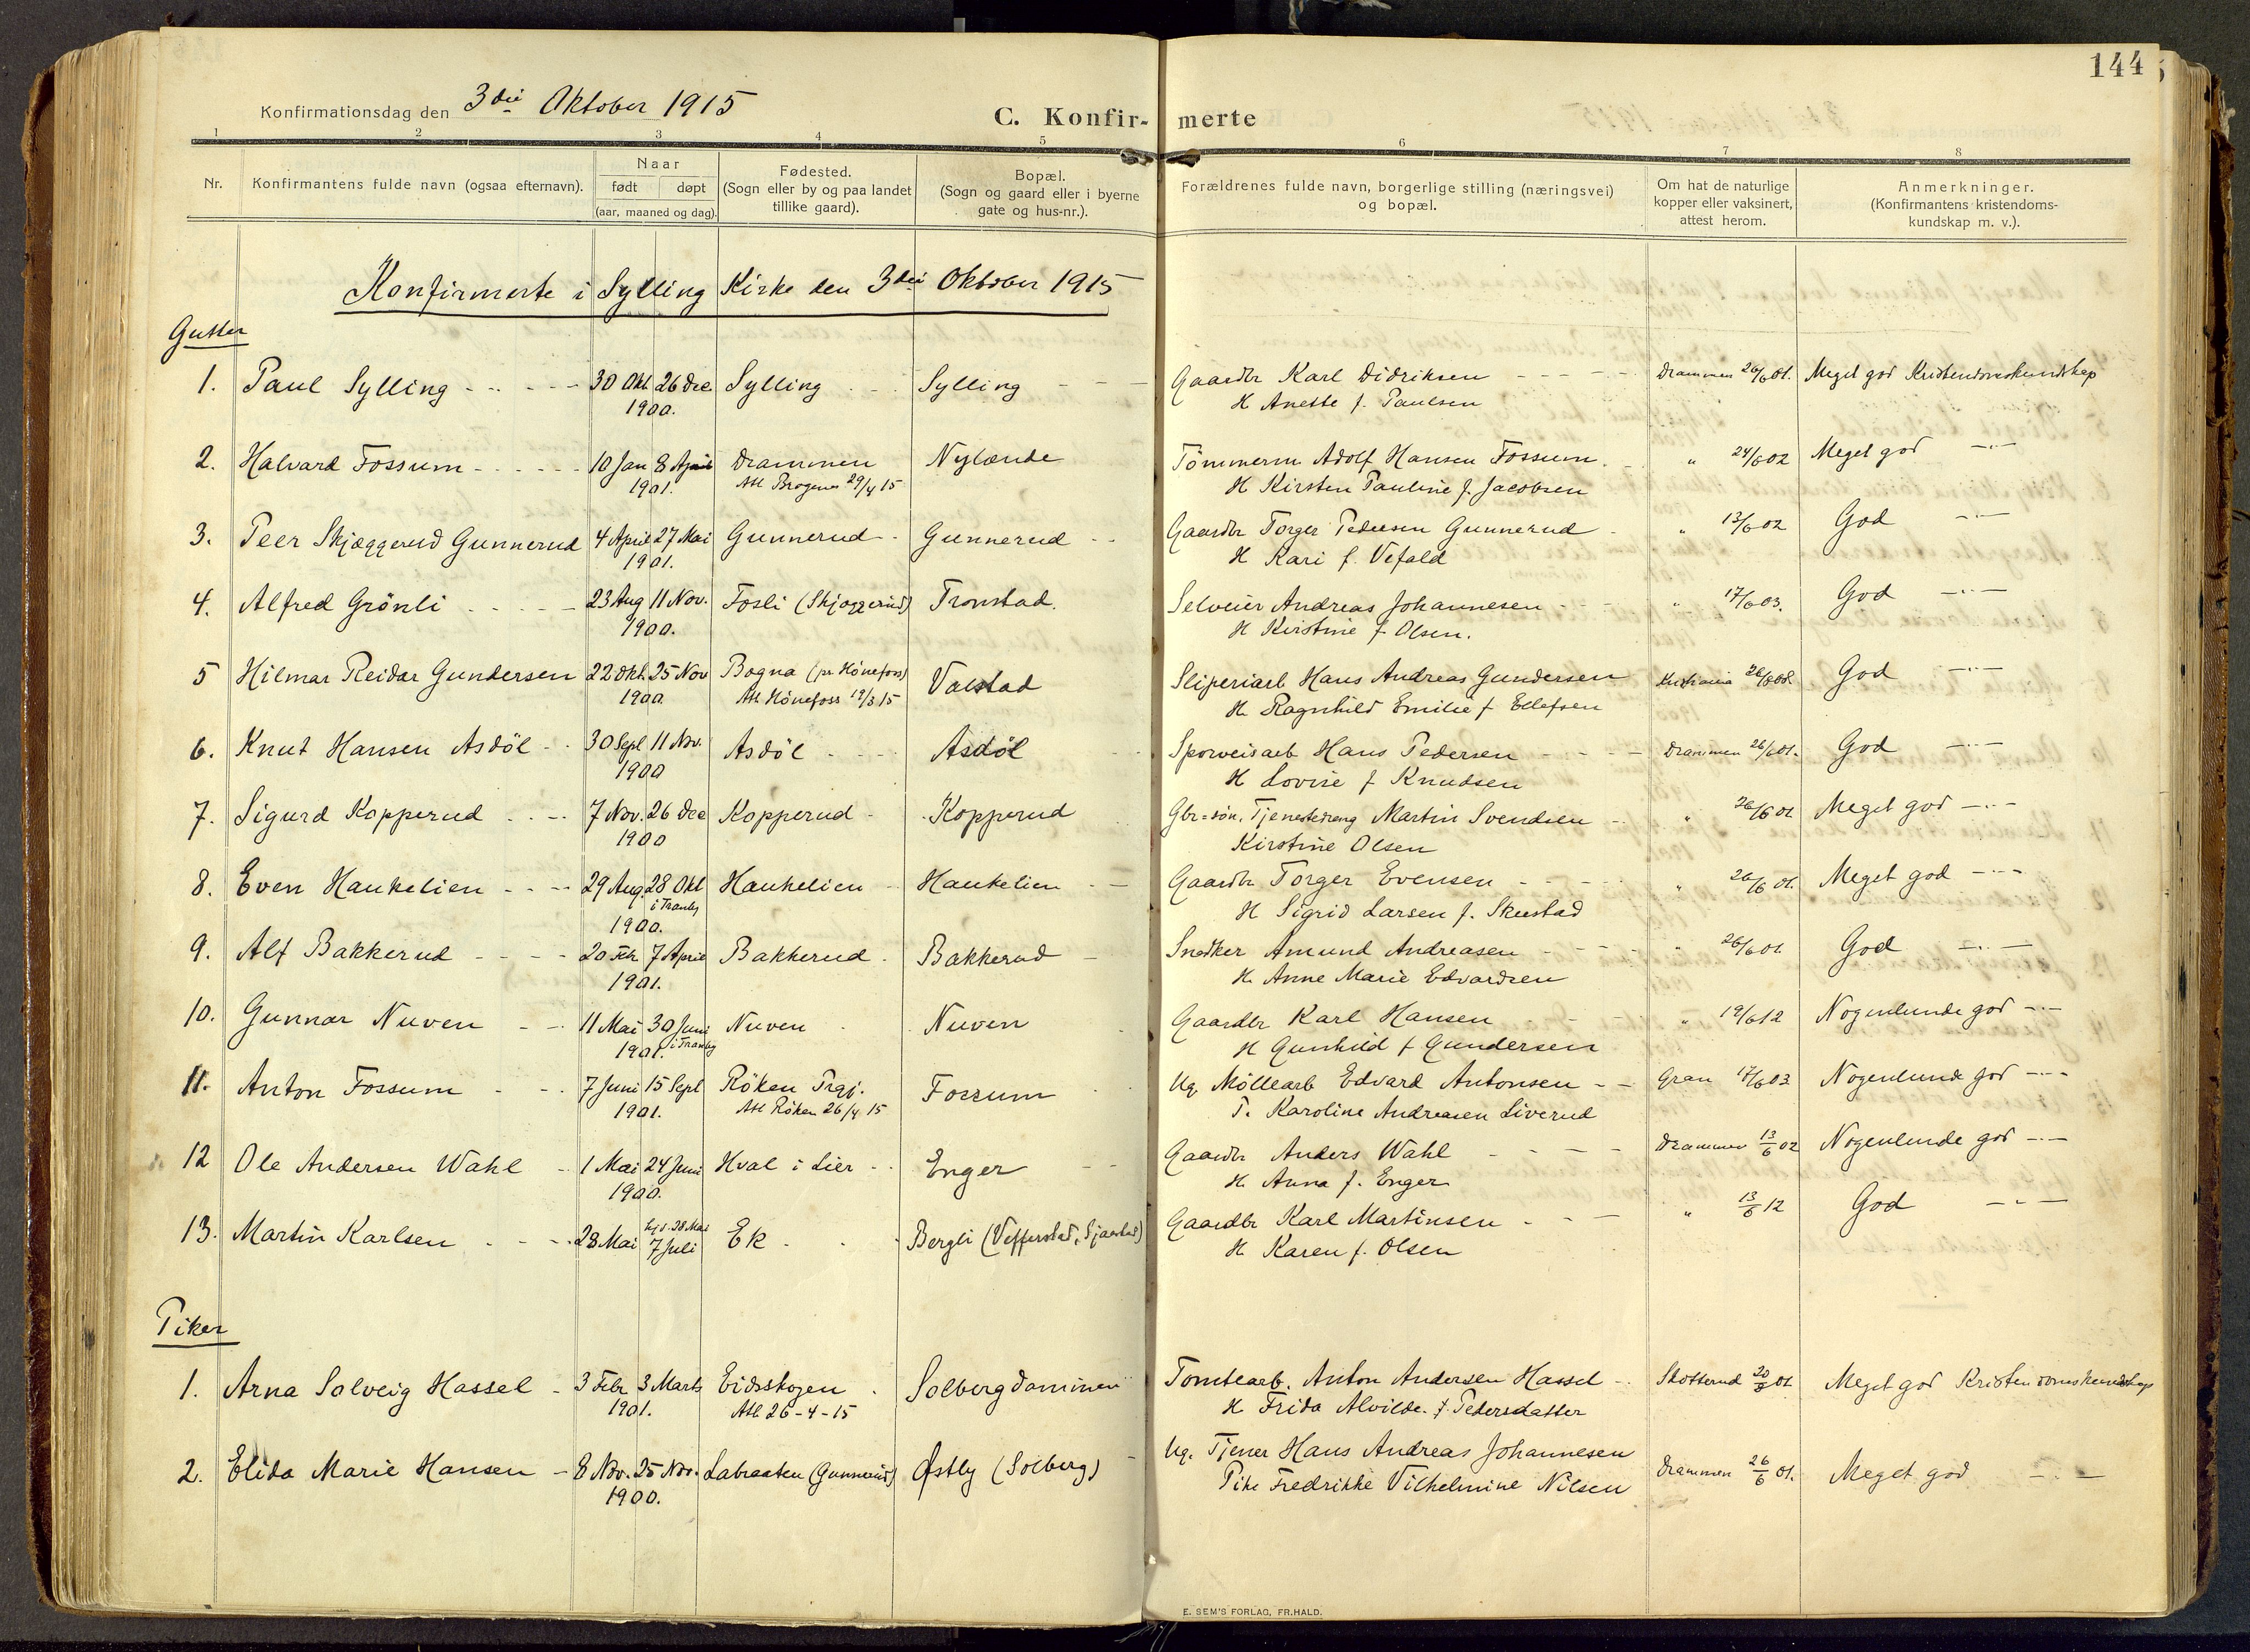 144
Konfirmationsdag den 3die Oktober 1915
C. Konfir- merte
1 2 3 4 5 6 7 8
Nr.
Konfirmantens fulde navn (ogsaa efternavn).
Naar
født døpt
(aar, maaned og dag).
Fødested.
(Sogn eller by og paa landet
tillike gaard).
Bopæl.
(Sogn og gaard eller i byerne
gate og hus-nr.).
Forældrenes fulde navn, borgerlige stilling (næringsvei)
og bopæl.
Om hat de naturlige
kopper eller vaksinert,
attest herom.
Anmerkninger.
(Konfirmantens kristendoms-
kundskap m. v.).
Konfirmerte i Sylling Kirke den 3die Oktober 1915
Gutter
1. Paul Sylling 30 Okt. 26 Dec Sylling Sylling Gaardbr Karl Didriksen Drammen 26/6 01. Meget god Kristendomskundskap
1900. H Anette f. Paulsen
2. Halvard Fossum 10 Jan 8 April Drammen Nylænde Tømmerm Adolf Hansen Fossum " 24/6 02 Meget god —"—
1901. Att Bragenes 29/4 15 H Kirsten Pauline f. Jacobsen
3. Peer Skjæggerud Gunnerud 4 April 27 Mai Gunnerud Gunnerud Gaardbr Torger Pedersen Gunnerud " 13/6 02 God —"—
1901. H Kari f. Vefald
4. Alfred Grönli 23 Aug 11 Nov. Fosli (Skjæggerud) Tronstad. Selveier Andreas Johannesen " 17/6 03. God —"—
1900. H Kirstine f Olsen.
5 Hilmar Reidar Gundersen 22 Okt. 25 Nov Bogna (pr Hönefoss) Valstad Sliperiarb Hans Andreas Gundersen Kristiania God —"—
1900. Att Hönefoss 19/3 15 H. Ragnhild Emilie f Ellefsen
6. Knut Hansen Asdöl 30 Sept 11 Nov. Asdöl Asdöl Sporveisarb Hans Pedersen Drammen 26/6 01. God —"—
1900 H Lovise f Knudsen
7. Sigurd Kopperud 7 Nov. 26 Dec Kopperud Kopperud Gbr=sön, Tjenestedreng Martin Svendsen " 26/6 01 Meget god —"—
1900 Kirstine Olsen
8. Even Haukelien 29 Aug. 28 Okt Haukelien Haukelien Gaardbr Torger Evensen " 26/6 01. Meget god —"—
i Tranby
1900. H Sigrid Larsen f. Skustad
9. Alf Bakkerud 20 Feb. 7 April Bakkerud Bakkerud Snedker Amund Andreasen " 26/6 01 God —"—
1901. H. Anne Marie Edvardsen
10. Gunnar Nuven 11 Mai 30 Juni Nuven Nuven Gaardbr Karl Hansen " 19/6 12 Nogenlunde god —"—
1901. i Tranby H Gunhild f Gundersen
11. Anton Fossum 7 Juni 15 Sept Röken Prgj. Fossum Ug. Möllearb Edvard Antonsen Gran 17/6 03 Nogenlunde god —"—
1901. Att Röken 26/4 15 P. Karoline Andreasen Liverud
12 Ole Andersen Wahl 1 Mai 24 Juni Hval i Lier Enger Gaardbr Anders Wahl Drammen 13/6 02 Nogenlunde god —"—
1900. H. Anna f. Enger
13. Martin Karlsen 28 Mai hjd. 28 Mai 7 Juli Ek Bergli (Vefferstad, Sjaastad) Gaardbr Karl Martinsen " 13/6 12 God —"—
H. Karen f. Olsen
Piker
1. Arna Solveig Hassel 3 Febr 3 Marts Eidsskogen Solbergdammen Tomtearb. Anton Andersen Hassel Skotterud 20/8 01 Meget god Kristendomskundskap
1901. Att 26-4-15 H Frida Alvilde f. Pedersdatter
2. Elida Marie Hansen 8 Nov. 25 Nov. Labraaten (Gunnerud) Østby (Solberg) Ug. Tjener Hans Andreas Johannesen Drammen 26/6 01. Meget god —"—
1900. Pike Fredrikke Vilhelmine Nilsen
E. SEM'S FORLAG, FR.HALD.